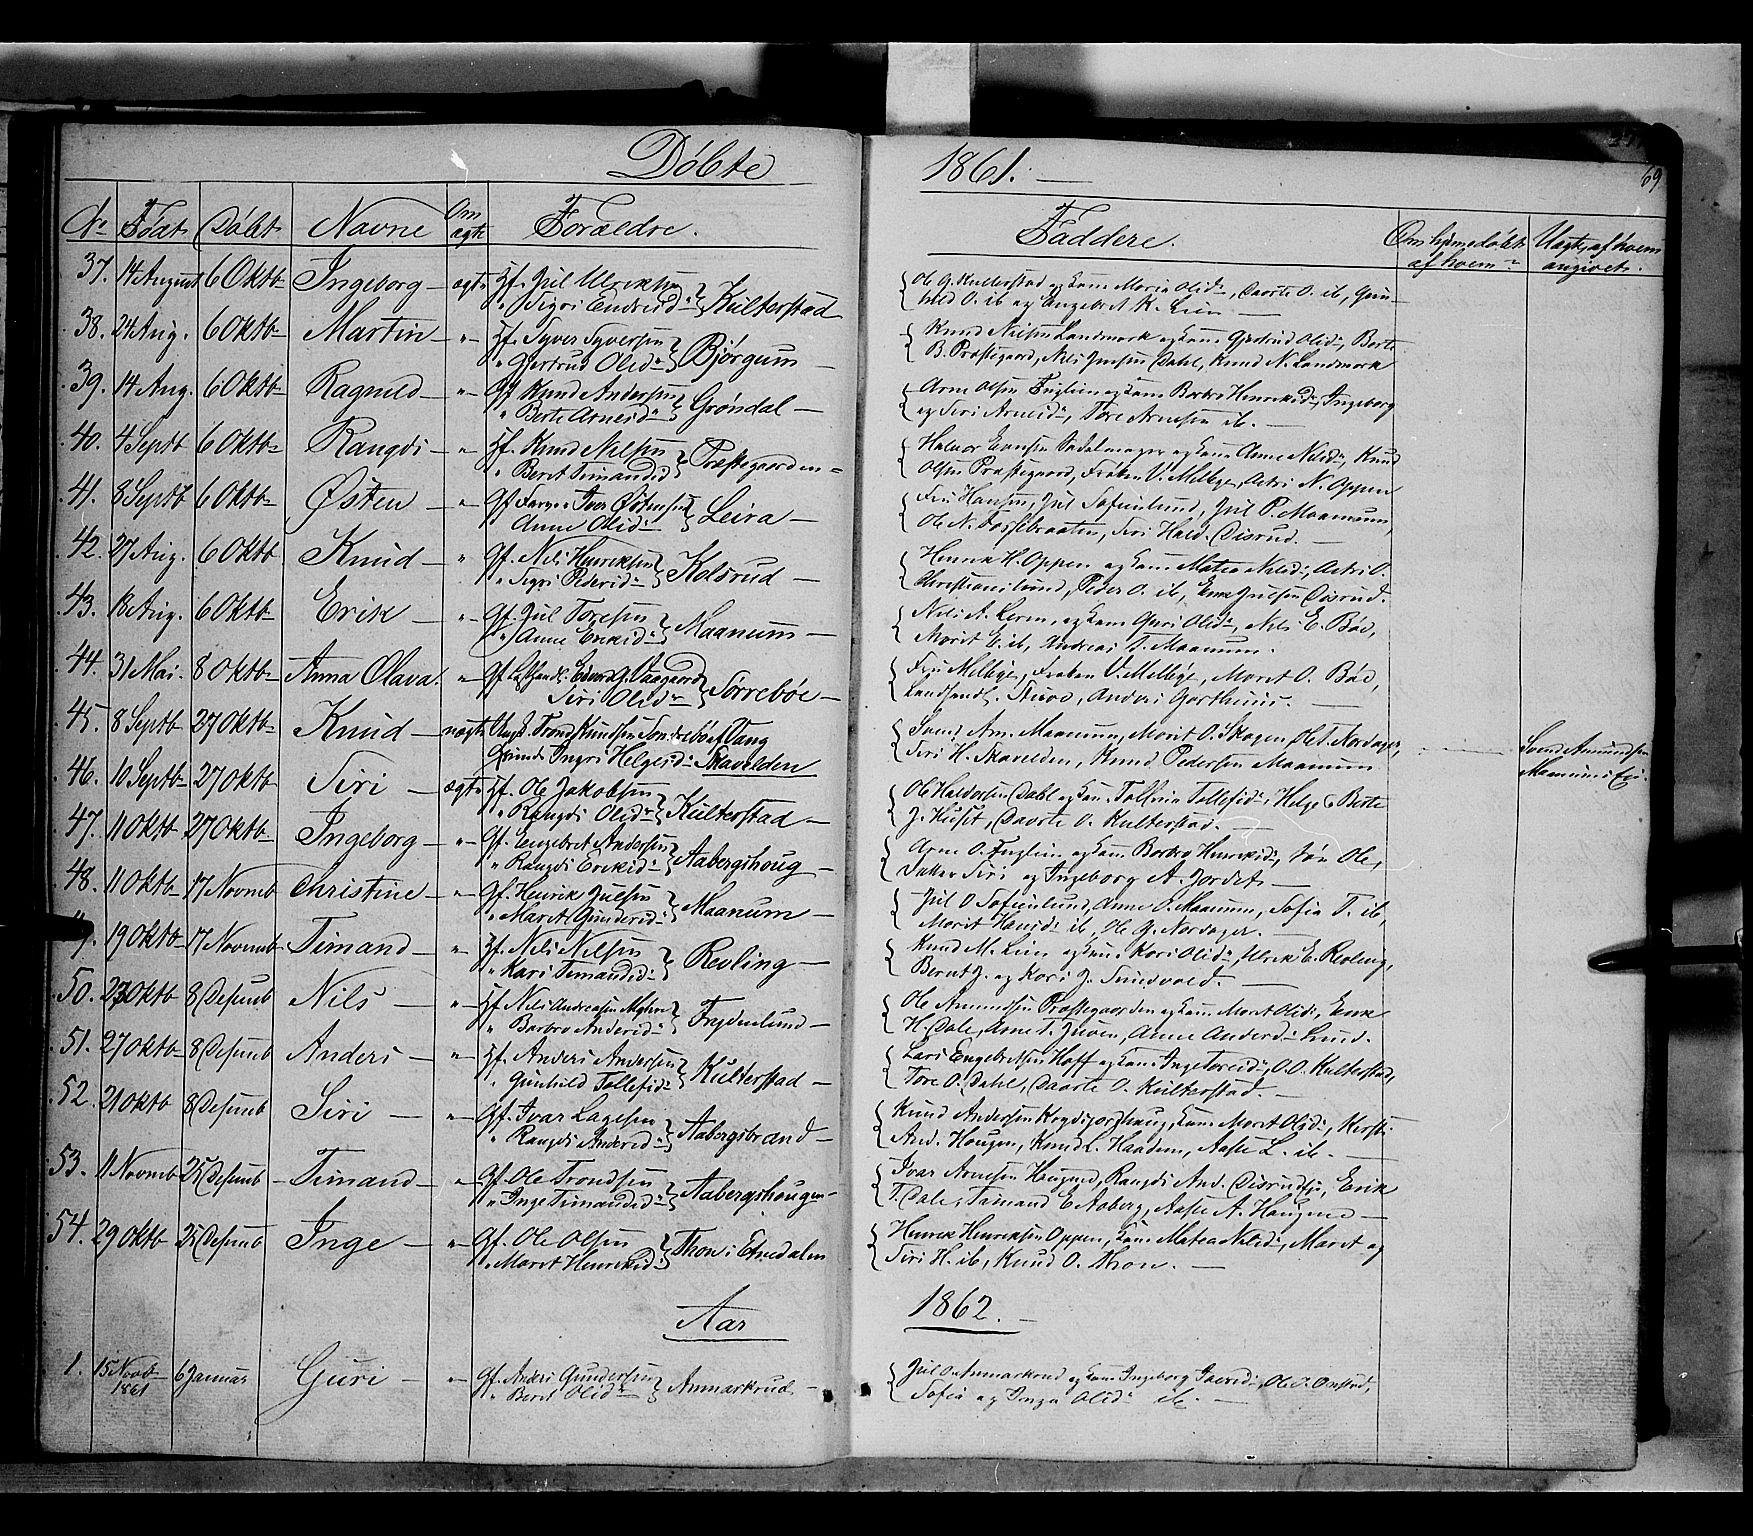 Døbte 1861.
69
No Født Døbt Navne Om ægte Forældre. Faddere. Om hjemedøbt af hvem? Uægte, af hvem angivet.
37. 14 August 6 Oktb Ingeborg ægte Gf. Jul Ulriksen
" Sigri Endreid Kulterstad
Ole G. Kulterstad og Kone Maria Olsd, Daarte O. ib, Gun-
hild O. ib og Engebret K. Lien
38. 24 Aug. 6 Oktb Martin " Gf. Syver Syversen
" Gjertrud Olsd Bjørgum
Knud Nilsen Landmark og Kone Gjertrud Olsd, Berte
B. Præstegaard, Nils Jensen Dahl, Knud N. Landmark
39. 14 Aug. 6 Oktb Ragnild " Gf Knud Andersen
" Berte Arnesd Grøndal
Arne Olsen Fuglien og Kone Barbro Henriksd, Ingeborg
og Siri Arnesd, Tore Arnesen ib.
40. 4 Septb 6 Oktb Rangdi " Gf. Knud Nilsen
" Berit Timandsd Præstegaarden
Halvor Sadelmager og Kone Anne Nilsd, Knud
Olsen Præstegaard, Frøken V. Melbye, Astri N. Oppen
41. 8 Septb 6 Oktb Østen " Gf Farver Ivar Østensen
Anne Olsd Leira
Fru Hansen, Jul Sofienlund, Jul P. Maanum,
Ole N. Fossebraaten, Siri Hald. Disrud.
42. 27 Aug. 6 Oktb Knud " Gf. Nils Henriksen
" Sigri Pedersd Kolsrud
Henrik H. Oppen og Kone Matea Nilsd, Astri O.
Christianslund, Peder O. ib, Julsen Disrud.
43. 13 Aug. 6 Oktb Erik " Gf. Jul Toresen
" Anne Eriksd Maanum
Nils A. og Kone Guri Olsd, Nils E. Bøe,
Marit E. ib, Andreas T. Maanum.
44. 31 Mai. 8 Oktb Anna Olava. " Gf Edvard G. Vaagaard
Siri Olsd Sørrebøe
Fru Melbye, Frøken V. Melbye, Marit O. Bøe,
Landhandl. Struve, Anders Garthus.
45. 8 Septb 27 Oktb Knud uægte Ungk. Trond Knudsen Søndrebø af Vang
Qvinde Ingri Helgesd Skavelden
Svend Am. Maanum, Marit O. Skogen, Ole T. Nordager,
Siri H. Skavelden, Knud Pedersen Maanum
Svend Amundsen
Maanum
46. 10 Septb 27 Oktb Siri ægte Gf. Ole Jakobsen
" Rangdi Olsd Kulterstad
Ole Haldorsen Dahl og Kone Tollefsd, Helge & Berte
J. Huset, Daarte O. Kulterstad.
47. 11 Oktb 27 Oktb Ingeborg " Gf. Engebret Andersen
" Rangdi Eriksd Aabergshoug
Arne O. Fuglien og Kone Barbro Henriksd, Søn Ole,
Datter Siri og Ingeborg A. Jordet
48. 11 Oktb 17 Novmb Christine " Gf. Henrik Julsen
" Marit Gundersd Maanum
Jul O Sofienlund, Anne O. Maanum, Sofia T. ib,
Marit Hansd ib, Ole G. Nordager.
9. 19 Oktb 17 Novmb Timand " Gf. Nils Nilsen
" Kari Timandsd Revling
Knud M. Lien og Kone Kari Olsd, Ulrik E. Revling,
Bernt J. og Kari J. Sundvold.
50. 23 Oktb 8 Desemb Nils " Gf Nils Andreasen
" Barbro Andersd Frydenlund
Ole Amundsen Præstegaarden og Kone Marit Olsd, Erik
H. Dale, Arne T. Juven, Anne Andersd Lund.
51. 27 Oktb 8 Desemb Anders " Gf. Anders Andersen
" Gunhild Tollefsd Kulterstad
Lars Engebretsen Hoff og Kone Inge Toresd, O. O. Kulterstad,
Tore O. Dahl, Daarte O. Kulterstad.
52. 21 Oktb 8 Desemb Siri " Gf. Ivar Lagesen
" Rangdi Andersd Aabergsbraad
Knud Andersen Kone Marit Olsd, Kersti
And. Hougen, Knud L. Haadem, Aaste L. ib.
53. 11 Novmb 25 Desemb Timand " Gf. Ole Trondsen
" Inge Timandsd Aabergshougen
Ivar Arnesen Hougen, Rangdi And. Erik
T. Dale, Timand E. Aaberg, Aaste A. Hougen
54. 29 Oktb 25 Desemb Inge " Gf. Ole Olsen
" Marit Henriksd Thon i Etnedalen
Henrik Henriksen Oppen, Kone Matea Nilsd, Marit og
Siri H. ib, Knud O. Thon.
Aar 1862.
1. 15 Novb 1861 6 Januar Guri " Gf. Anders Gundersen
" Berit Olsd Anmarkrud
Jul O. Anmarkrud og Kone Ingeborg Iversd, Ole I. Onstad,
Sofia og Inga Olsd ib.